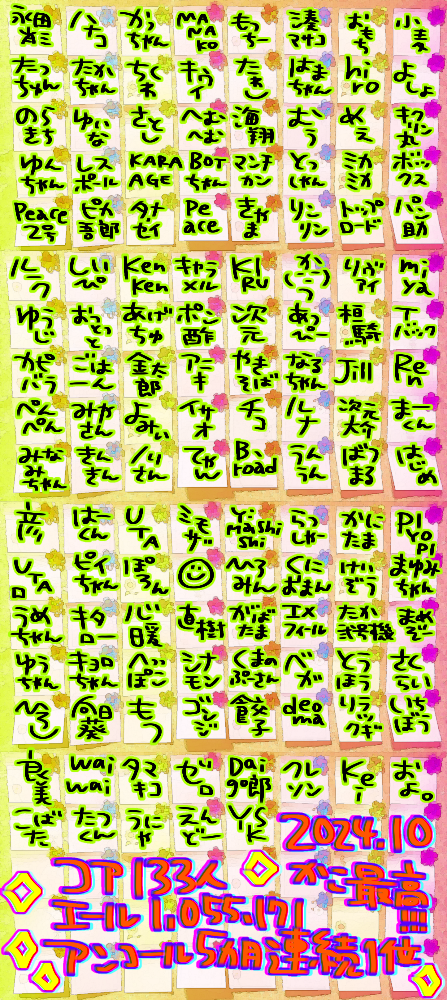 永田彩 ハナコ かっちゃん MANAKO もっちー 湊マサコ おもち 小麦
たっちゃん たかちゃん ちくわ キウイ たれし はまちゃん hiro よしよ
のらきち ゆいな さとし へむへむ 海翔 むう めえ キクリン丸
ゆんちゃん レスポール KARAAGE BOTちゃん マンチカン とっしゃん ミカミカ ボックス
Peace2号 ピカ吾郎 タナセイ Peace きやま リンリン トップロード パン助
ルーク しいぴ KenKen キャラメル KIRU か(--)つ リヴァイ miya
ゆうじ おてっと あげちゅ ポン酢 次元 あっぴー 桓騎 Tバック
カピバラ ごはんー 金太郎 アニーキ やきそば なるちゃん Jill Ren
ぺんぺん みやさん よみぃ イサオ チコ ルナ 次元大介 まーくん
みなみちゃん きんきん ノリさん てゃん B.road うんうん ばつまる はじめ
彦 はーくん UTA ミモザ YiMashiShi らっしゃー かにたま PIYOPI
UTA ピイちゃん ぽろん ☺ ひろみん くにおまん けいぞう まゆみちゃん
うめちゃん キタロー 心暖 直樹 がばたま エメフィール たか弐号機 まめぞー
ゆうちゃん キョロちゃん へっぽこ シナモン くまのぷーさん べが とうほう さくらい
ひろし 向日葵 もつ ゴンジ 餃子 deoma リラックギ いちぼう
良美 waiwai タマキコ ゼロ Dai90郎 クレソン Kei およ。
こばった たつくん うにゃ えんどー YUSK
2024.10
コア133人 かこ最高!!!!
エール1,055,171
アンコール5カ月連続1位